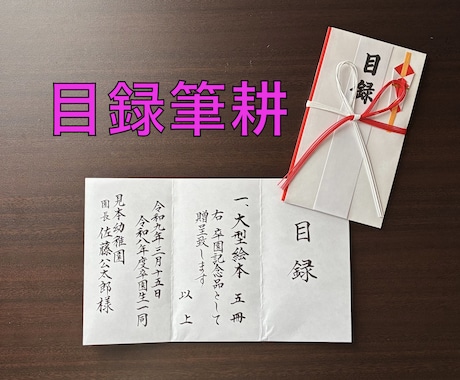 目録筆耕
目録
目録
一、大型絵本 五冊
右 卒園記念品として
贈呈致します
以上
令和九年三月十五日
令和八年度卒園生一同
見本幼稚園
園長 佐藤公太郎様